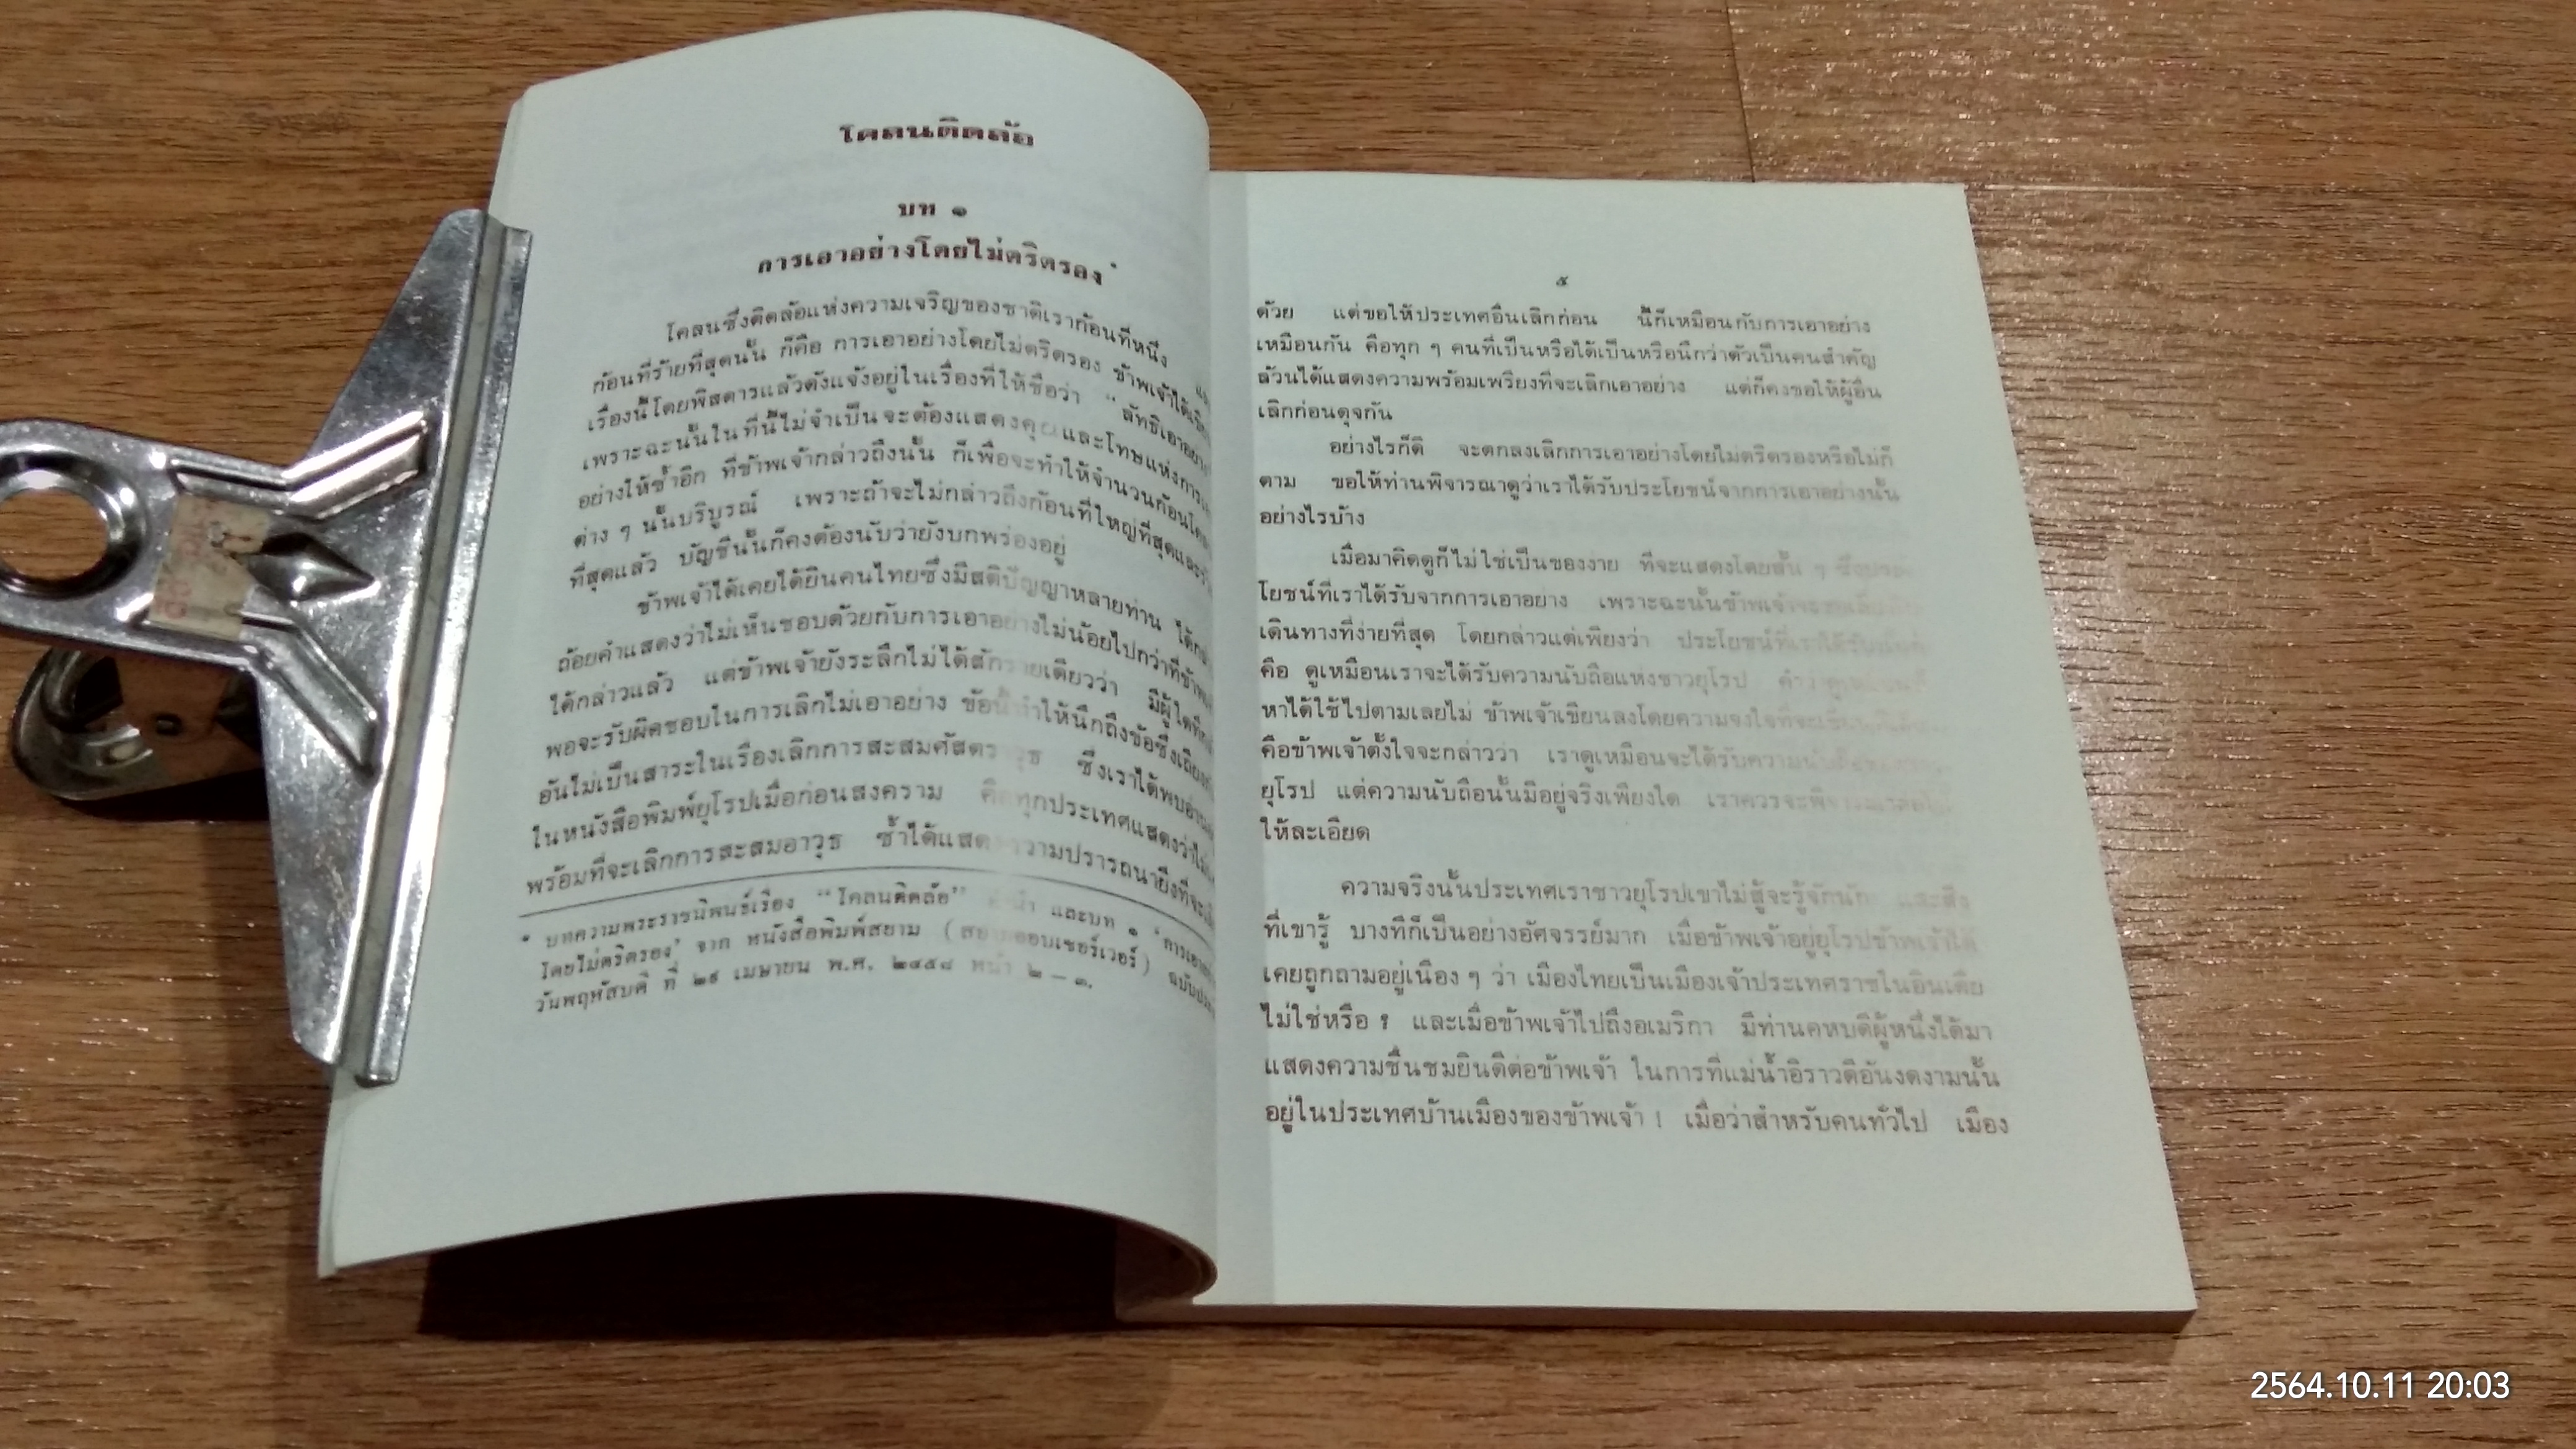 โคลนติดล้อ
บท ๑
การเอาอย่างโดยไม่ตริตรอง*
โคลนซึ่งติดล้อแห่งความเจริญของชาติเราก้อนที่หนึ่ง
ก้อนที่ร้ายที่สุดนั้น ก็คือ การเอาอย่างโดยไม่ตริตรอง ข้าพเจ้าได้
เรื่องนี้โดยพิสดารแล้วดังแจ้งอยู่ในเรื่องที่ให้ชื่อว่า “ลัทธิเอาอย่าง
เพราะฉะนั้นในที่นี้ไม่จำเป็นจะต้องแสดงคุณและโทษแห่งการ
อย่างให้ซ้ำอีก ที่ข้าพเจ้ากล่าวถึงนั้น ก็เพื่อจะทำให้จำนวนก้อน
ต่าง ๆ นั้นบริบูรณ์ เพราะถ้าจะไม่กล่าวถึงก้อนที่ใหญ่ที่สุดและ
ที่สุดแล้ว บัญชีนั้นก็คงต้องนับว่ายังบกพร่องอยู่
ข้าพเจ้าได้เคยได้ยินคนไทยซึ่งมีสติปัญญาหลายท่าน ได้
ถ้อยคำแสดงว่าไม่เห็นชอบด้วยกับการเอาอย่างไม่น้อยไปกว่าที่
ได้กล่าวแล้ว แต่ข้าพเจ้ายังระลึกไม่ได้สักรายเดียวว่า มีผู้ใด
พอจะรับผิดชอบในการเลิกไม่เอาอย่าง ข้อนี้ทำให้นึกถึงข้อซึ่ง
อันไม่เป็นสาระในเรื่องเลิกการสะสมศัสตราวุธ ซึ่งเราได้พบ
ในหนังสือพิมพ์ยุโรปเมื่อก่อนสงคราม คือทุกประเทศแสดงว่า
พร้อมที่จะเลิกการสะสมอาวุธ ซ้ำได้แสดงความปรารถนายิ่งที่จะ
* บทความพระราชนิพนธ์เรื่อง “โคลนติดล้อ” คำนำ และบท ๑
โดยไม่ตริตรอง’ จาก หนังสือพิมพ์สยาม (สยามออบเซอร์เวอร์)
วันพฤหัสบดี ที่ ๒๙ เมษายน พ.ศ. ๒๔๕๘ หน้า ๒ — ๓.
๕
ด้วย แต่ขอให้ประเทศอื่นเลิกก่อน นี้ก็เหมือนกับการเอาอย่าง
เหมือนกัน คือทุก ๆ คนที่เป็นหรือได้เป็นหรือนึกว่าตัวเป็นคนสำคัญ
ล้วนได้แสดงความพร้อมเพรียงที่จะเลิกเอาอย่าง แต่ก็คงขอให้ผู้อื่น
เลิกก่อนดุจกัน
อย่างไรก็ดี จะตกลงเลิกการเอาอย่างโดยไม่ตริตรองหรือไม่ก็
ตาม ขอให้ท่านพิจารณาดูว่าเราได้รับประโยชน์จากการเอาอย่างนั้น
อย่างไรบ้าง
เมื่อมาคิดดูก็ไม่ใช่เป็นของง่าย ที่จะแสดงโดยสั้น ๆ
โยชน์ที่เราได้รับจากการเอาอย่าง เพราะฉะนั้นข้าพเจ้า
เดินทางที่ง่ายที่สุด โดยกล่าวแต่เพียงว่า ประโยชน์ที่เราได้รับ
คือ ดูเหมือนเราจะได้รับความนับถือแห่งชาวยุโรป
หาได้ใช้ไปตามเลยไม่ ข้าพเจ้าเขียนลงโดยความจงใจที่จะ
คือข้าพเจ้าตั้งใจจะกล่าวว่า เราดูเหมือนจะได้รับความ
ยุโรป แต่ความนับถือนั้นมีอยู่จริงเพียงใด เราควรจะ
ให้ละเอียด
ความจริงนั้นประเทศเราชาวยุโรปเขาไม่สู้จะรู้จักนัก และสิ่ง
ที่เขารู้ บางทีก็เป็นอย่างอัศจรรย์มาก เมื่อข้าพเจ้าอยู่ยุโรปข้าพเจ้าได้
เคยถูกถามอยู่เนือง ๆ ว่า เมืองไทยเป็นเมืองเจ้าประเทศราชในอินเดีย
ไม่ใช่หรือ ? และเมื่อข้าพเจ้าไปถึงอเมริกา มีท่านคหบดีผู้หนึ่งได้มา
แสดงความชื่นชมยินดีต่อข้าพเจ้า ในการที่แม่น้ำอิราวดีอันงดงามนั้น
อยู่ในประเทศบ้านเมืองของข้าพเจ้า ! เมื่อว่าสำหรับคนทั่วไป เมือง
2564.10.11 20:03